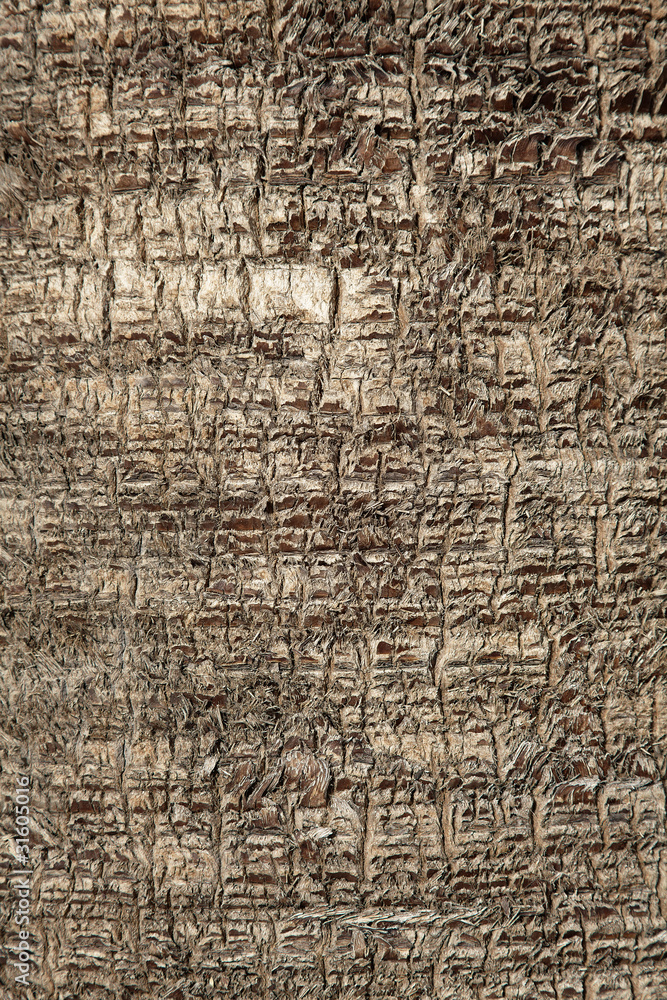 Adobe Stock | #31605016